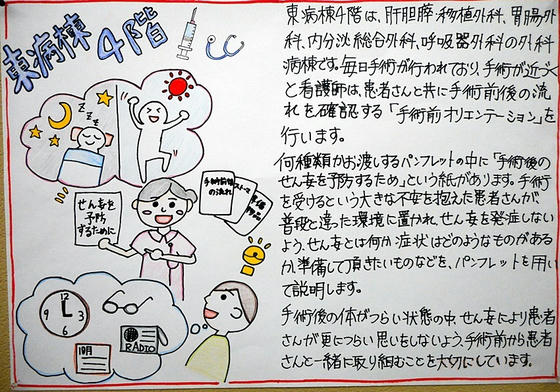 東病棟4階
Z
Z
Z
せん妄を
予防
するために
手術前後
の流れ
12
3
6
9
10月
RADIO
東病棟4階は、肝胆膵・移植外科、胃腸外
科、内分泌総合外科、呼吸器外科の外科
病棟です。毎日手術が行われており、手術が近づく
と看護師は、患者さんと共に手術前後の流
れを確認する「手術前オリエンテーション」を
行います。
何種類かお渡しするパンフレットの中に「手術後の
せん妄を予防するため」という紙があります。手術
を受けるという大きな不安を抱えた患者さんが
普段と違った環境に置かれ、せん妄を発症しない
よう、せん妄とは何か、症状はどのようなものがある
か、準備して頂きたいものなどを、パンフレットを用い
て説明します。
手術後の体がつらい状態の中、せん妄により患者
さんが更につらい思いをしないよう、手術前から患者
さんと一緒に取り組むことを大切にしています。